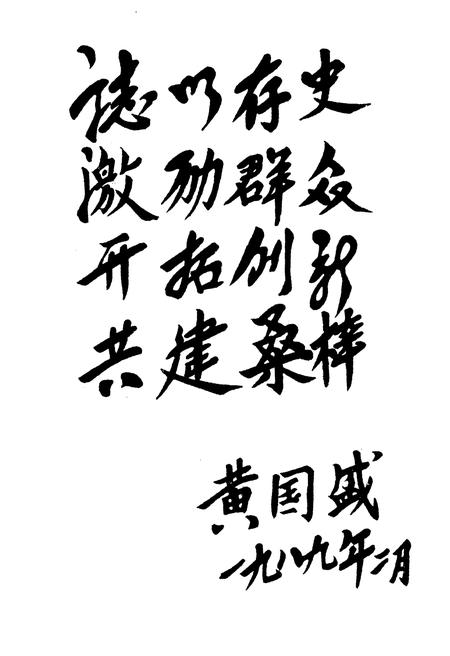 誌以存史
激励群众
开拓创新
共建桑梓
黄国盛
一九八九年二月